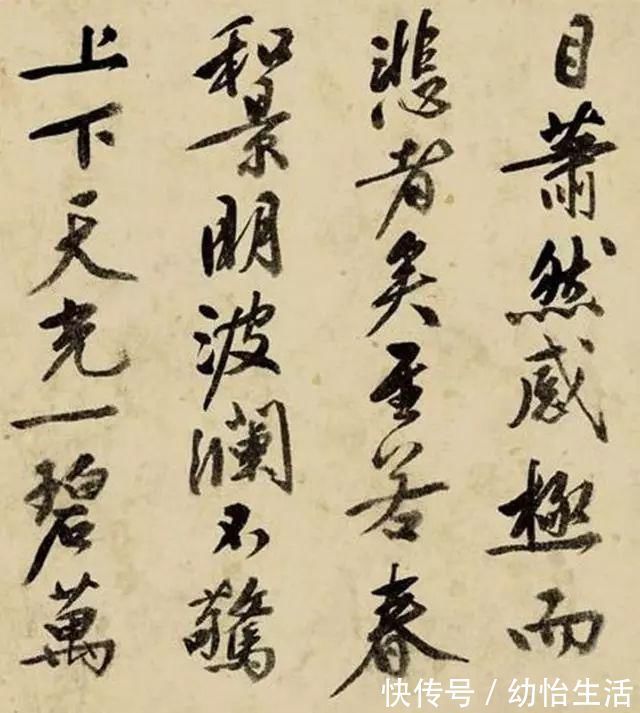 目蕭然感極而
悲者矣至若春
和景明波瀾不驚
上下天光一碧萬
快传号/幼怡生活